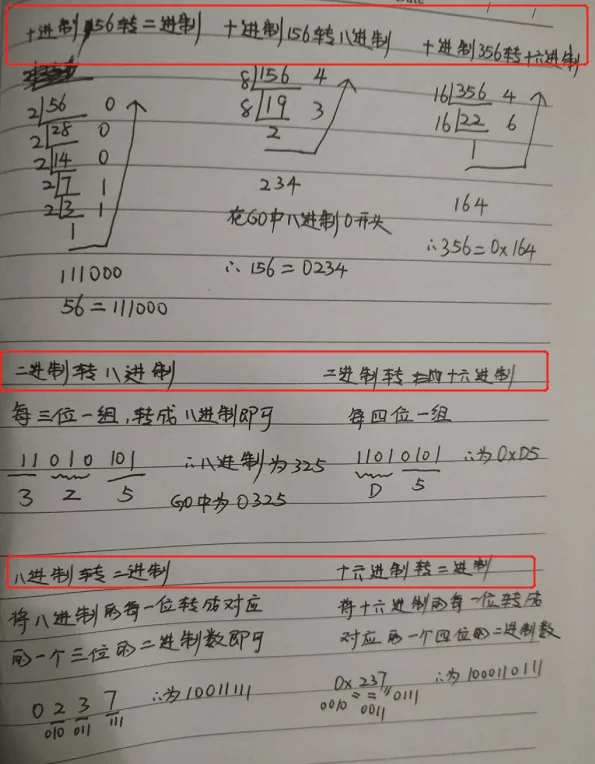 十进制56转二进制
十进制156转八进制
十进制356转十六进制
2 56 0
2 28 0
2 14 0
2 7 1
2 3 1
1
111000
56=111000
8 156 4
8 19 3
2
234
在GO中八进制0开头
∴156=0234
16 356 4
16 22 6
1
164
∴356=0x164
二进制转八进制
每三位一组,转成八进制即可
11 010 101
3 2 5
∴八进制为325
GO中为0325
二进制转十六进制
每四位一组
1101 0101
D 5
∴为0xD5
八进制转二进制
将八进制的每一位转成对应
的一个三位的二进制数即可
0 2 3 7
010 011 111
∴为10011111
十六进制转二进制
将十六进制的每一位转成
对应的一个四位的二进制数
0x237
0010 0011 0111
∴为1000110111